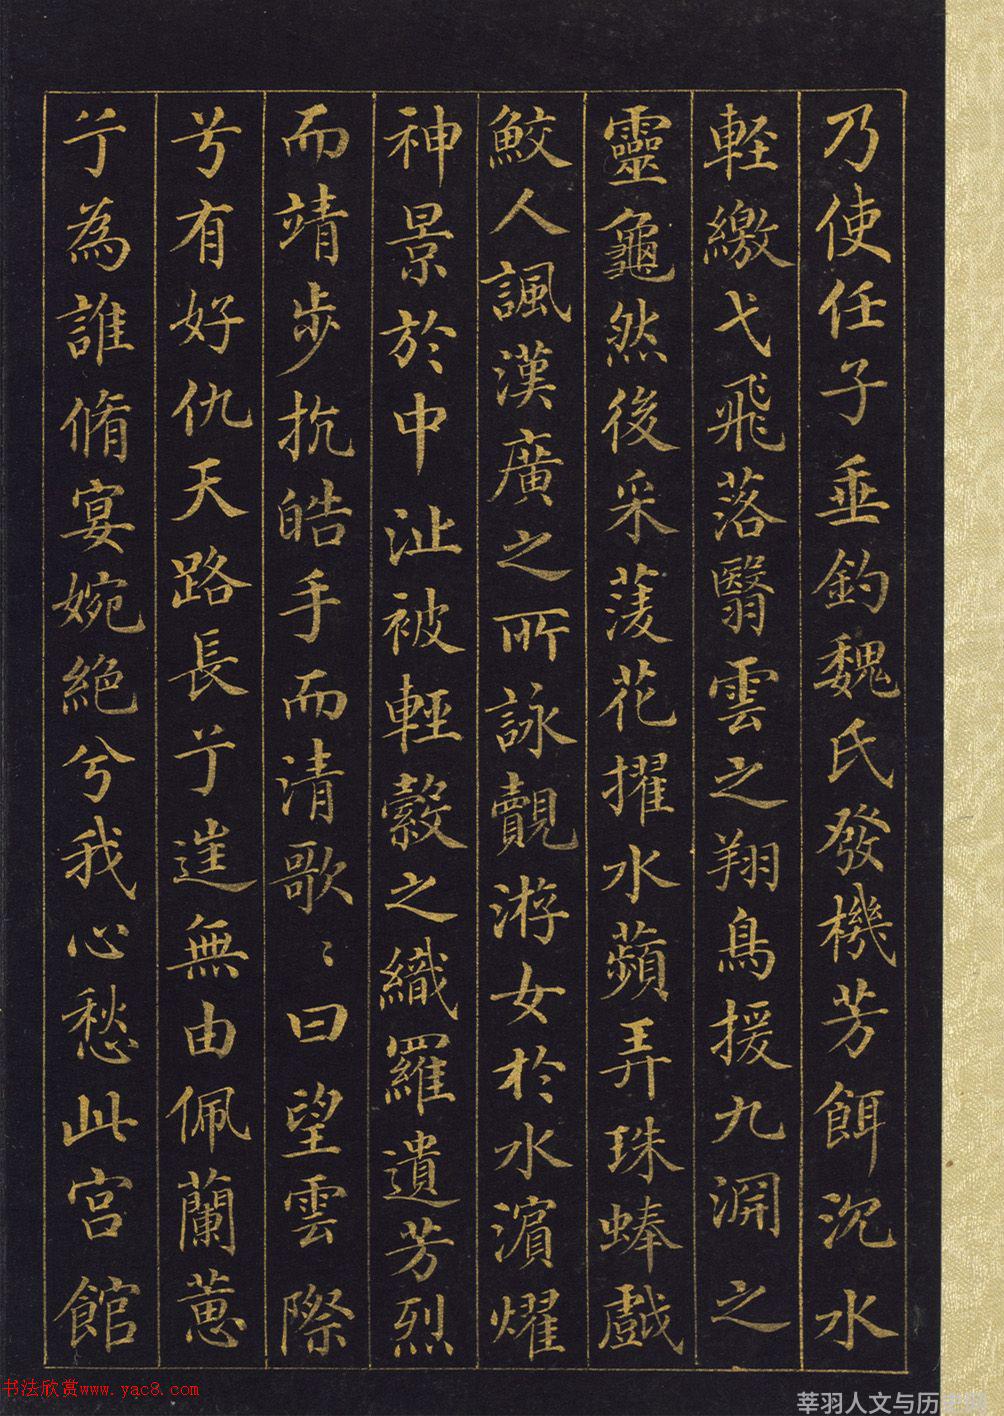 乃使任子垂釣魏氏發機芳餌沉水
軽繳弋飛落翳雲之翔鳥援九淵之
靈龜然後采菱花擢水蘋弄珠蜯戲
鮫人諷漢廣之所詠覿游女於水濱燿
神景於中沚被輕縠之織羅遺芳烈
而靖步抗皓手而清歌〻曰望雲際
兮有好仇天路長兮往無由佩蘭蕙
兮為誰脩宴婉絕兮我心愁此宮館
书法欣赏www.yac8.com
莘羽人文与历史